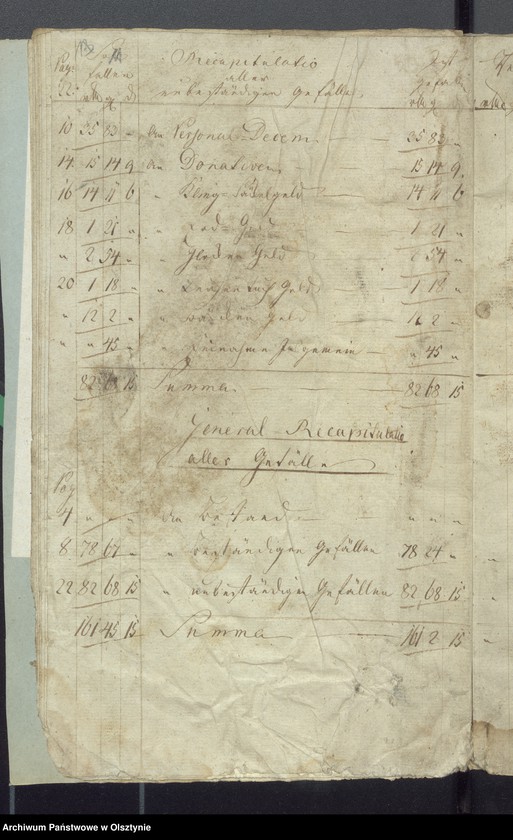 Recapitulatio
aller
unbeständigen Gefälle.
Pag: Soll fallen Ist gefallen
10 35 83 " An Personal-Decem 35 83 "
14. 15 14 9 An Donativen 15 14 9.
16 14 11 6 " 14 11 6
18 1 21 " " 1 21 "
" 2 54 " " Glocken Geld 2 54 "
20 1 18 " " Geld 1 18 "
" 12 2 " " Geld 2 "
" " 45 " " Einnahme Insgemein " 45 "
82 68 15 Summa 82 68 15
General-Recapitulatio
aller Gefälle
Pag
4 " " " An Bestand " " "
8 78 67 " " beständigen Gefällen 78 24 "
22 82 68 15 " unbeständigen Gefällen 82 68 15
161 45 15 Summa 161 2 15
Archiwum Państwowe w Olsztynie